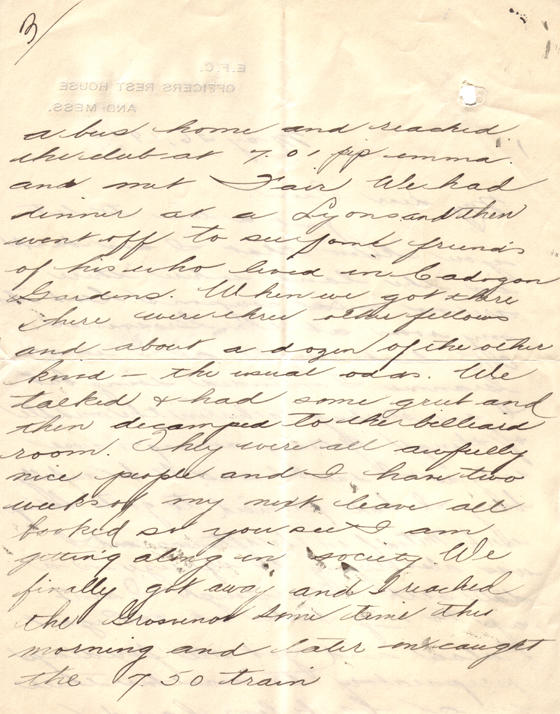 3
E.F.C.
OFFICERS REST HOUSE
AND MESS.
a bus home and reached
the club at 7.01 pip emma.
and met Fair We had
dinner at a Lyons and then
went off to see some friends
of his who lived in Cadogon
Gardens. When we got there
there were three other fellows
and about a dozen of the other
kind – the usual odds. We
talked & had some grub and
then decamped to the billiard
room. They were all awfully
nice people and I have two
weeks of my next leave all
booked so you see I am
getting along in society We
finally got away and I reached
the Grosvenor some time this
morning and later on caught
the 7 50 train